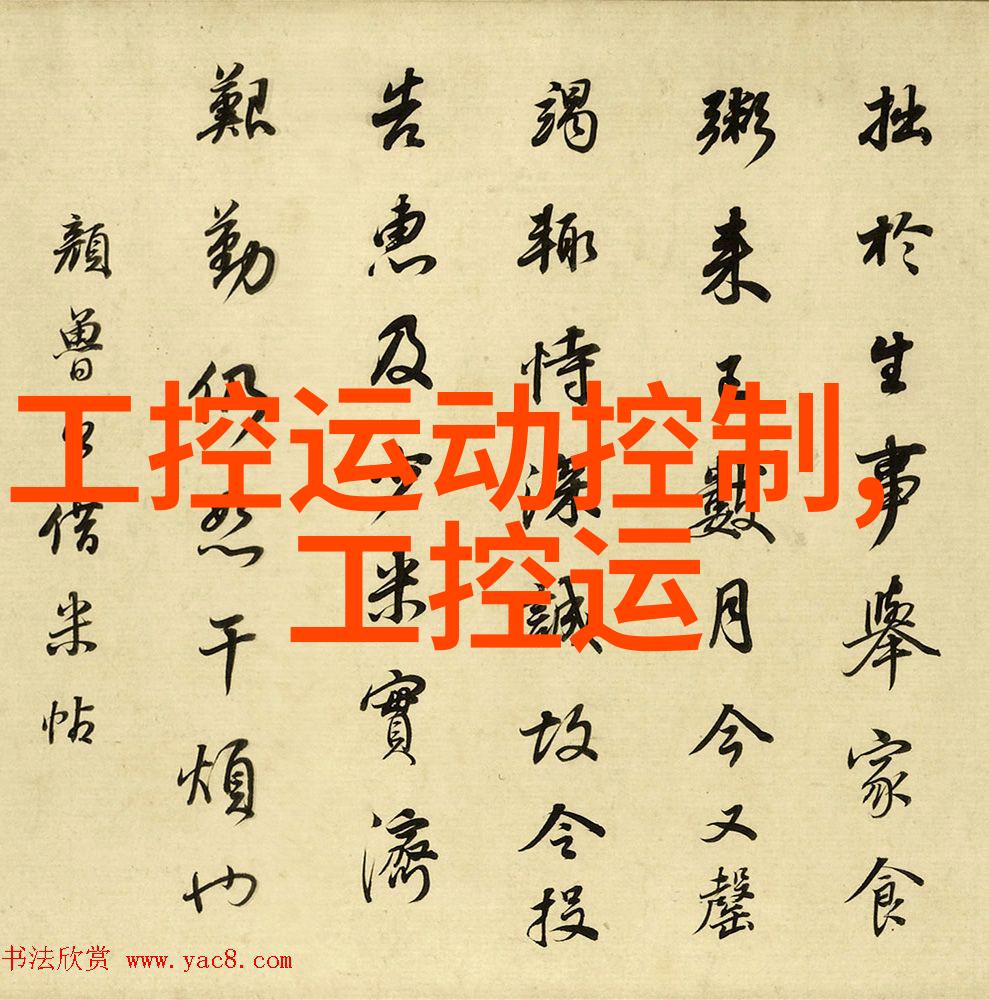 拙於生事舉家食
粥来已數月今又罄
竭輒恃深誠故令投
告惠及少米實濟
艱勤仍恕干煩也
顏魯公借米帖
工控运动控制,
工控运
书法欣赏 www.yac8.com